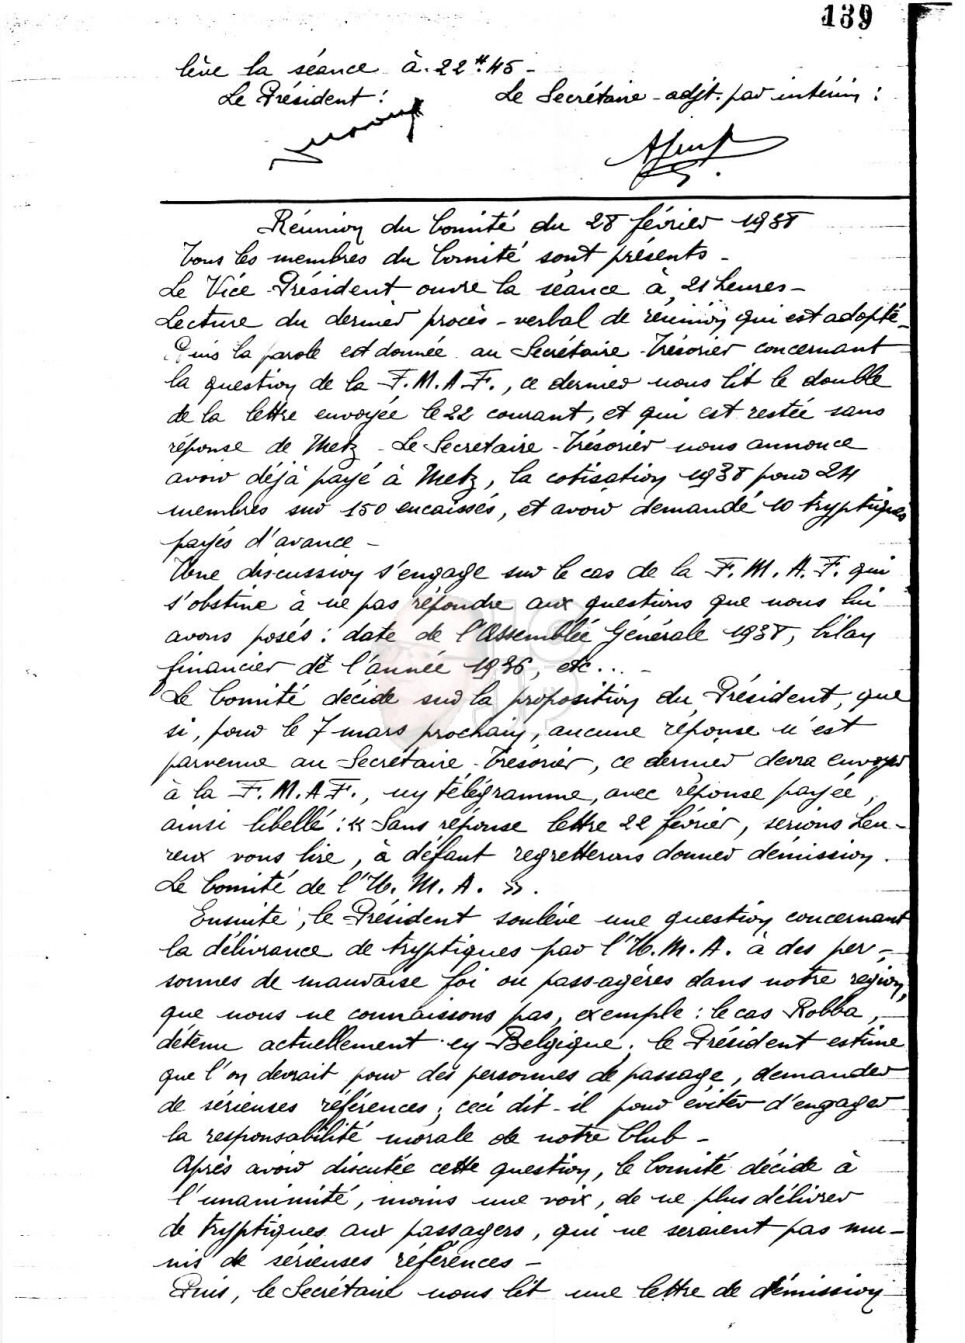 139
lève la séance à 22ʰ45 -
Le Président :
Le Secrétaire-adjt. par intérim :
Réunion du Comité du 28 février 1938
Tous les membres du Comité sont présents -
Le Vice-Président ouvre la séance à 21 heures -
Lecture du dernier procès-verbal de réunion qui est adopté -
Puis la parole est donnée au Secrétaire-Trésorier concernant
la question de la F.M.A.F., ce dernier nous lit le double
de la lettre envoyée le 22 courant, et qui est restée sans
réponse de Metz - Le Secrétaire-Trésorier nous annonce
avoir déjà payé à Metz, la cotisation 1938 pour 24
membres sur 150 encaissés, et avoir demandé 10 tryptiques
payés d'avance -
Une discussion s'engage sur le cas de la F.M.A.F. qui
s'obstine à ne pas répondre aux questions que nous lui
avons posés : date de l'Assemblée Générale 1938, bilan
financier de l'année 1936, etc... -
Le Comité décide sur la proposition du Président, que
si, pour le 7 mars prochain, aucune réponse n'est
parvenue au Secrétaire-Trésorier, ce dernier devra envoyer
à la F.M.A.F., un télégramme, avec réponse payée,
ainsi libellé : « Sans réponse lettre 22 février, serions heu-
reux vous lire, à défaut regretterons donner démission.
Le Comité de l'U.M.A. ».
Ensuite, le Président soulève une question concernant
la délivrance de tryptiques par l'U.M.A. à des per-
sonnes de mauvaise foi ou passagères dans notre région,
que nous ne connaissons pas, exemple : le cas Robba,
détenu actuellement en Belgique, le Président estime
que l'on devrait pour des personnes de passage, demander
de sérieuses références ; ceci dit-il pour éviter d'engager
la responsabilité morale de notre Club -
Après avoir discutée cette question, le Comité décide à
l'unanimité, moins une voix, de ne plus délivrer
de tryptiques aux passagers, qui ne seraient pas mu-
nis de sérieuses références -
Puis, le Secrétaire nous lit une lettre de démission